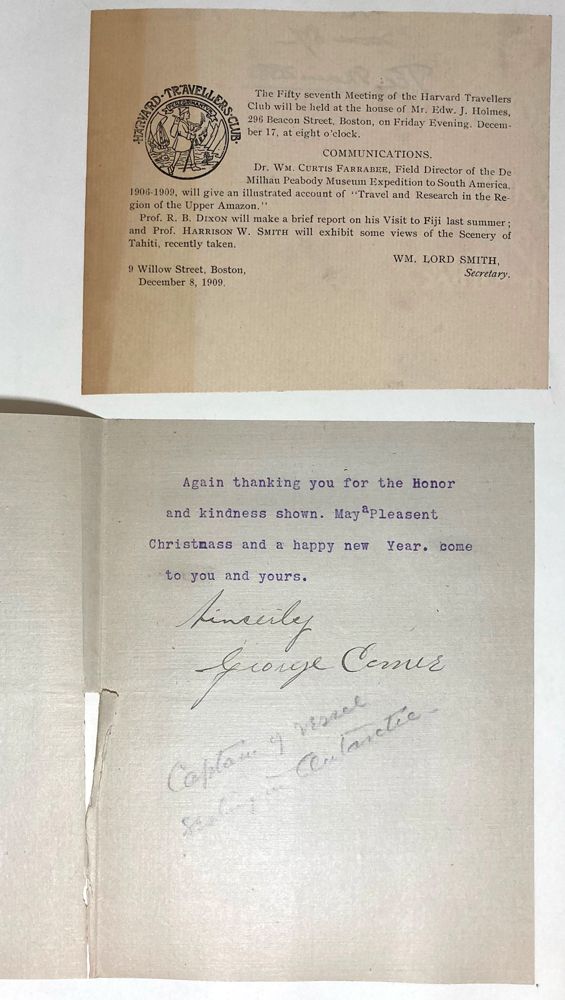 HARVARD·TRAVELLERS·CLUB·
The Fifty seventh Meeting of the Harvard Travellers
Club will be held at the house of Mr. Edw. J. Holmes,
296 Beacon Street, Boston, on Friday Evening. Decem-
ber 17, at eight o'clock.
COMMUNICATIONS.
Dr. Wm. Curtis Farrabee, Field Director of the De
Milhau Peabody Museum Expedition to South America.
1906-1909, will give an illustrated account of "Travel and Research in the Re-
gion of the Upper Amazon."
Prof. R. B. Dixon will make a brief report on his Visit to Fiji last summer;
and Prof. Harrison W. Smith will exhibit some views of the Scenery of
Tahiti, recently taken.
WM. LORD SMITH,
Secretary.
9 Willow Street, Boston,
December 8, 1909.
Again thanking you for the Honor
and kindness shown. May a Pleasent
Christmass and a happy new Year. come
to you and yours.
Sincerly
George Comer
Captain of vessel
Sealing in Antarctic